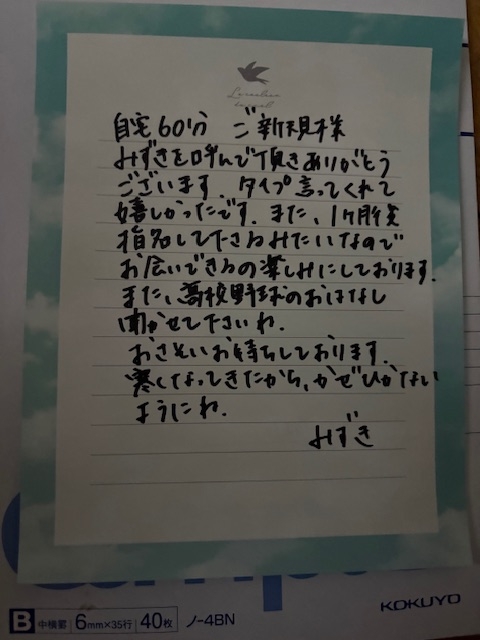 自宅60分 ご新規様
みずきを呼んで頂きありがとう
ございます. タイプ言ってくれて
嬉しかったです. また、1ヶ月后
指名して下さるみたいなので
お会いできるの楽しみにしております.
また、高校野球のおはなし
聞かせて下さいね.
おさそいお待ちしております.
寒くなってきたから、かぜひかない
ようにね.
みずき
B 中横罫 6mm×35行 40枚 ノ-4BN
KOKUYO